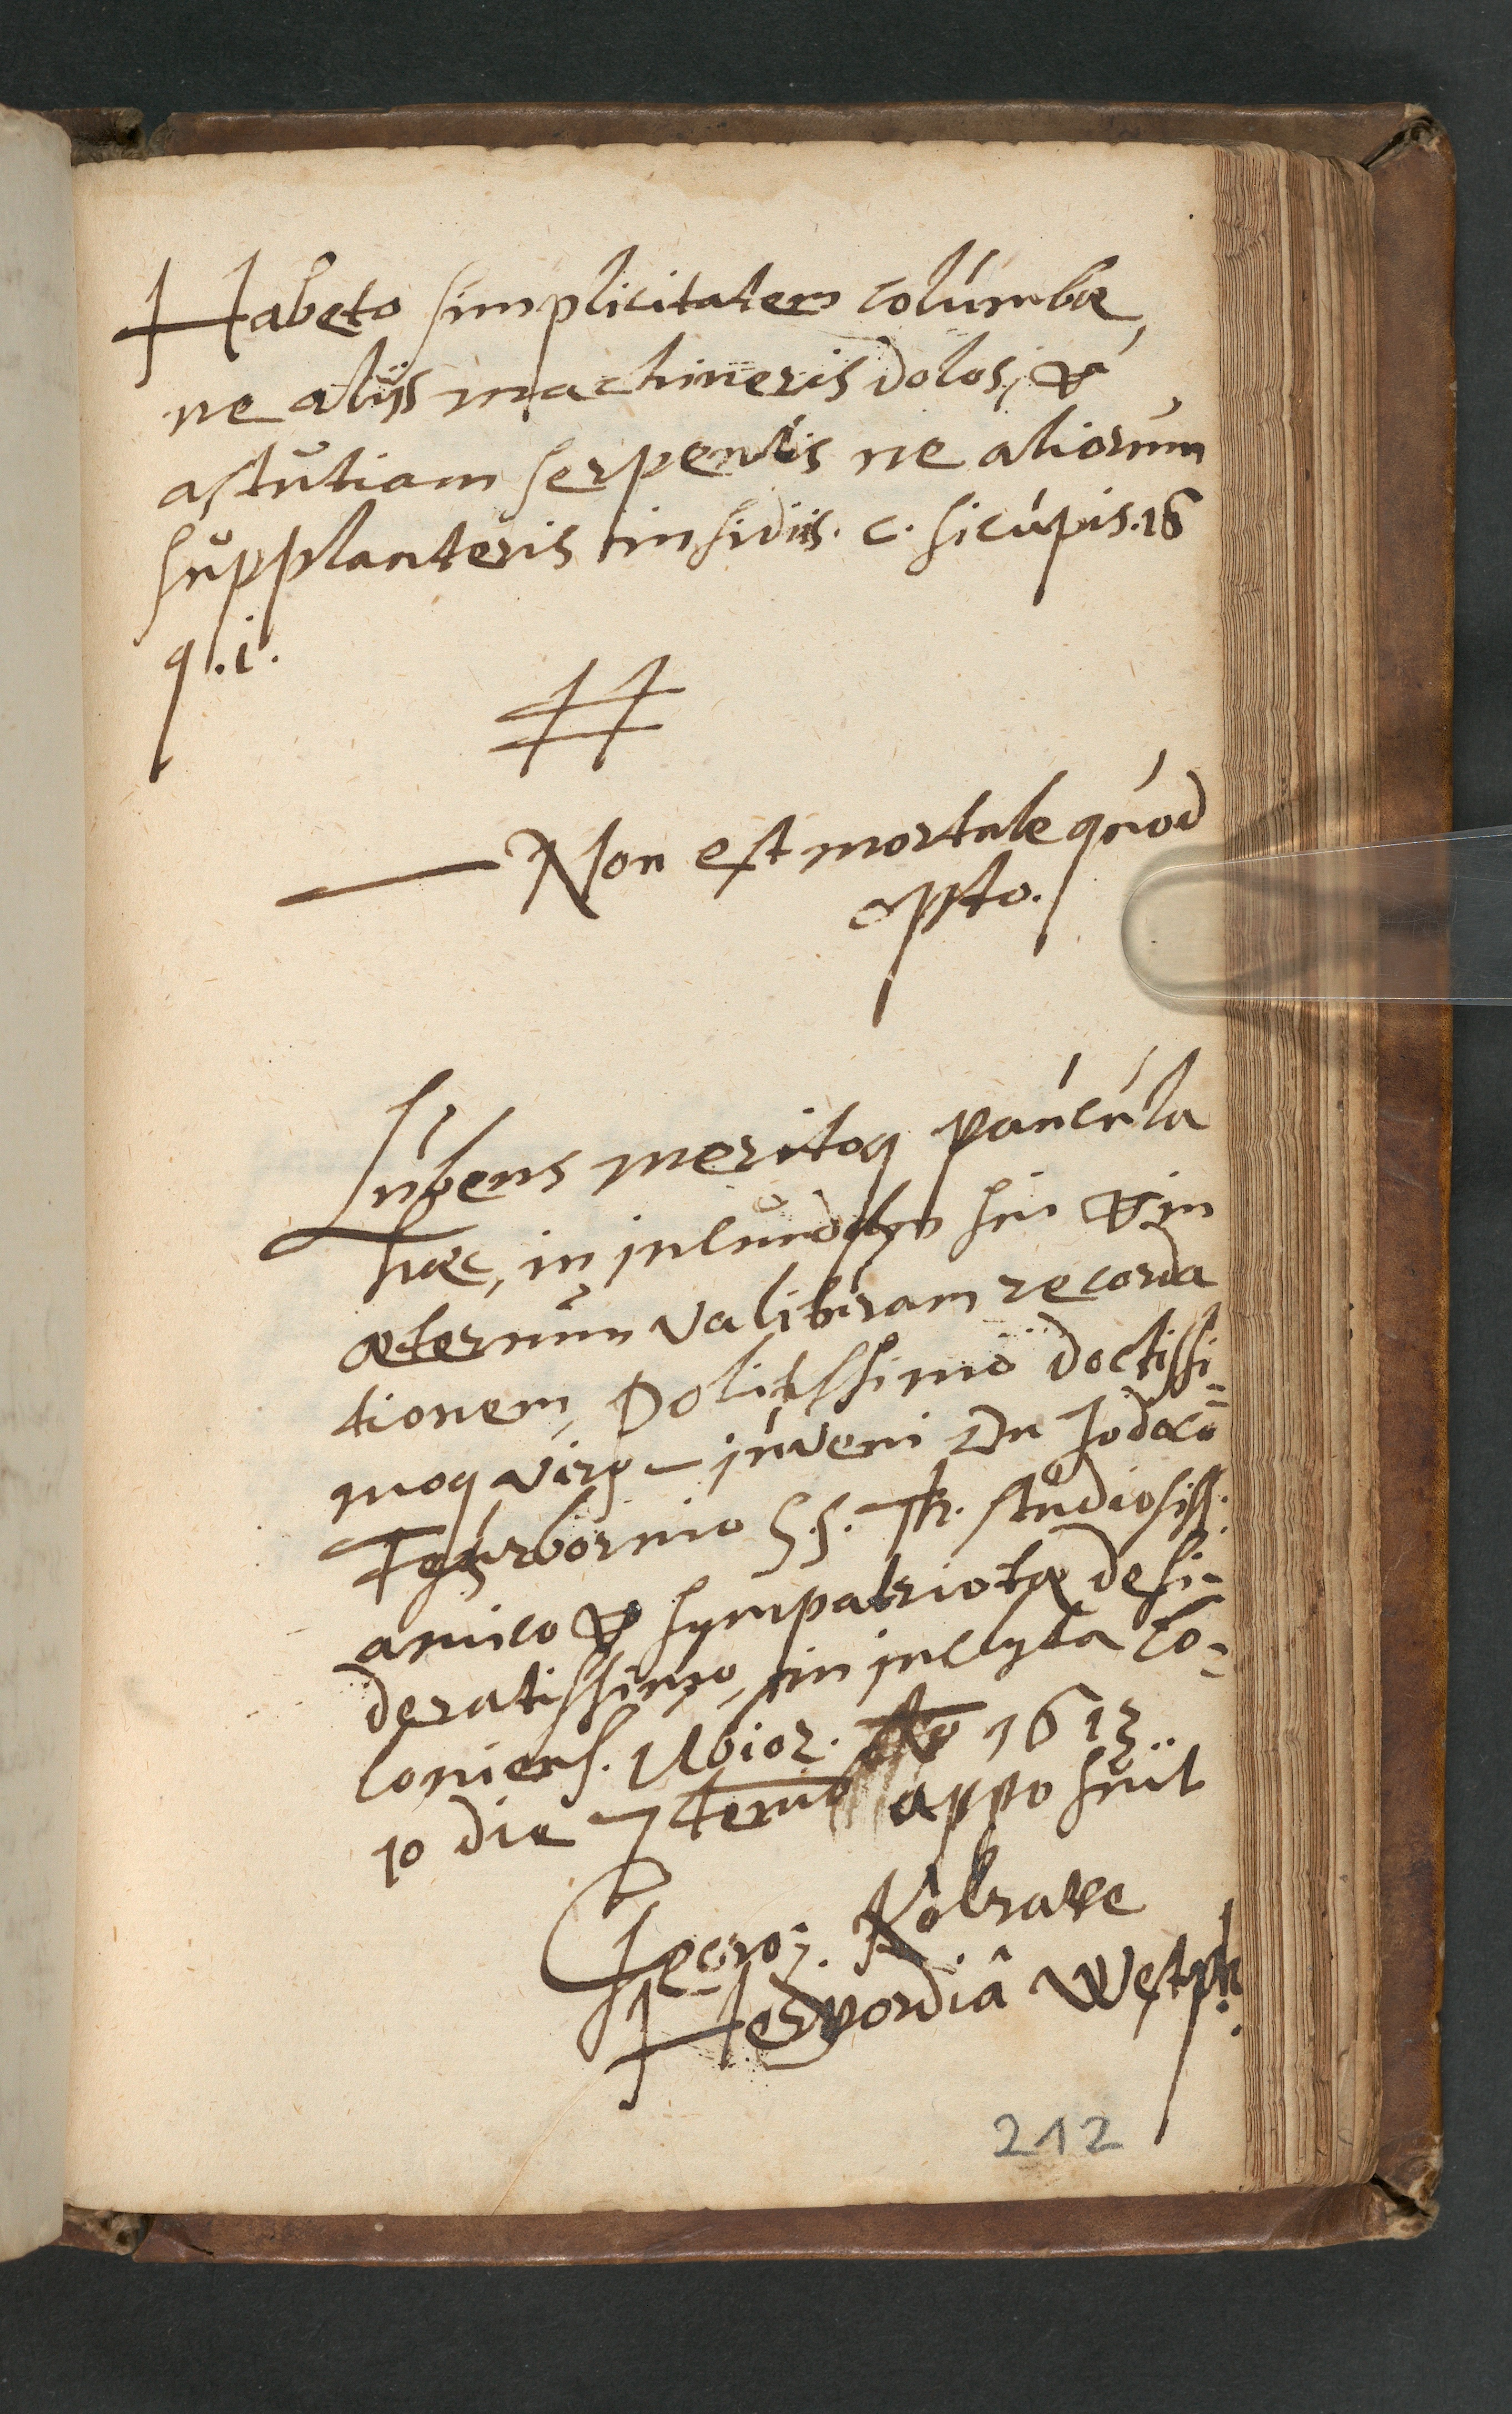 Habeto simplicitatem columbæ,
ne aliis machineris dolos, &
astutiam serpentis ne aliorum
supplanteris insidiis. c. si cupis. 16
q. i.
Non est mortale quod
opto.
Lubens meritoq paucula
hæc, in jucundam sui & in
æternum valituram recorda
tionem, Politissimo doctissi=
moq viro - juveni Dn Jodoco
S. S. Th. studiosiss.
amico & sympatriotæ desi=
deratissimo, in inclyta Co=
loniens. Ubior. Ao 1613..
10 die apposuit
Georg. Kôbrake
Hervordiâ Westph.
212